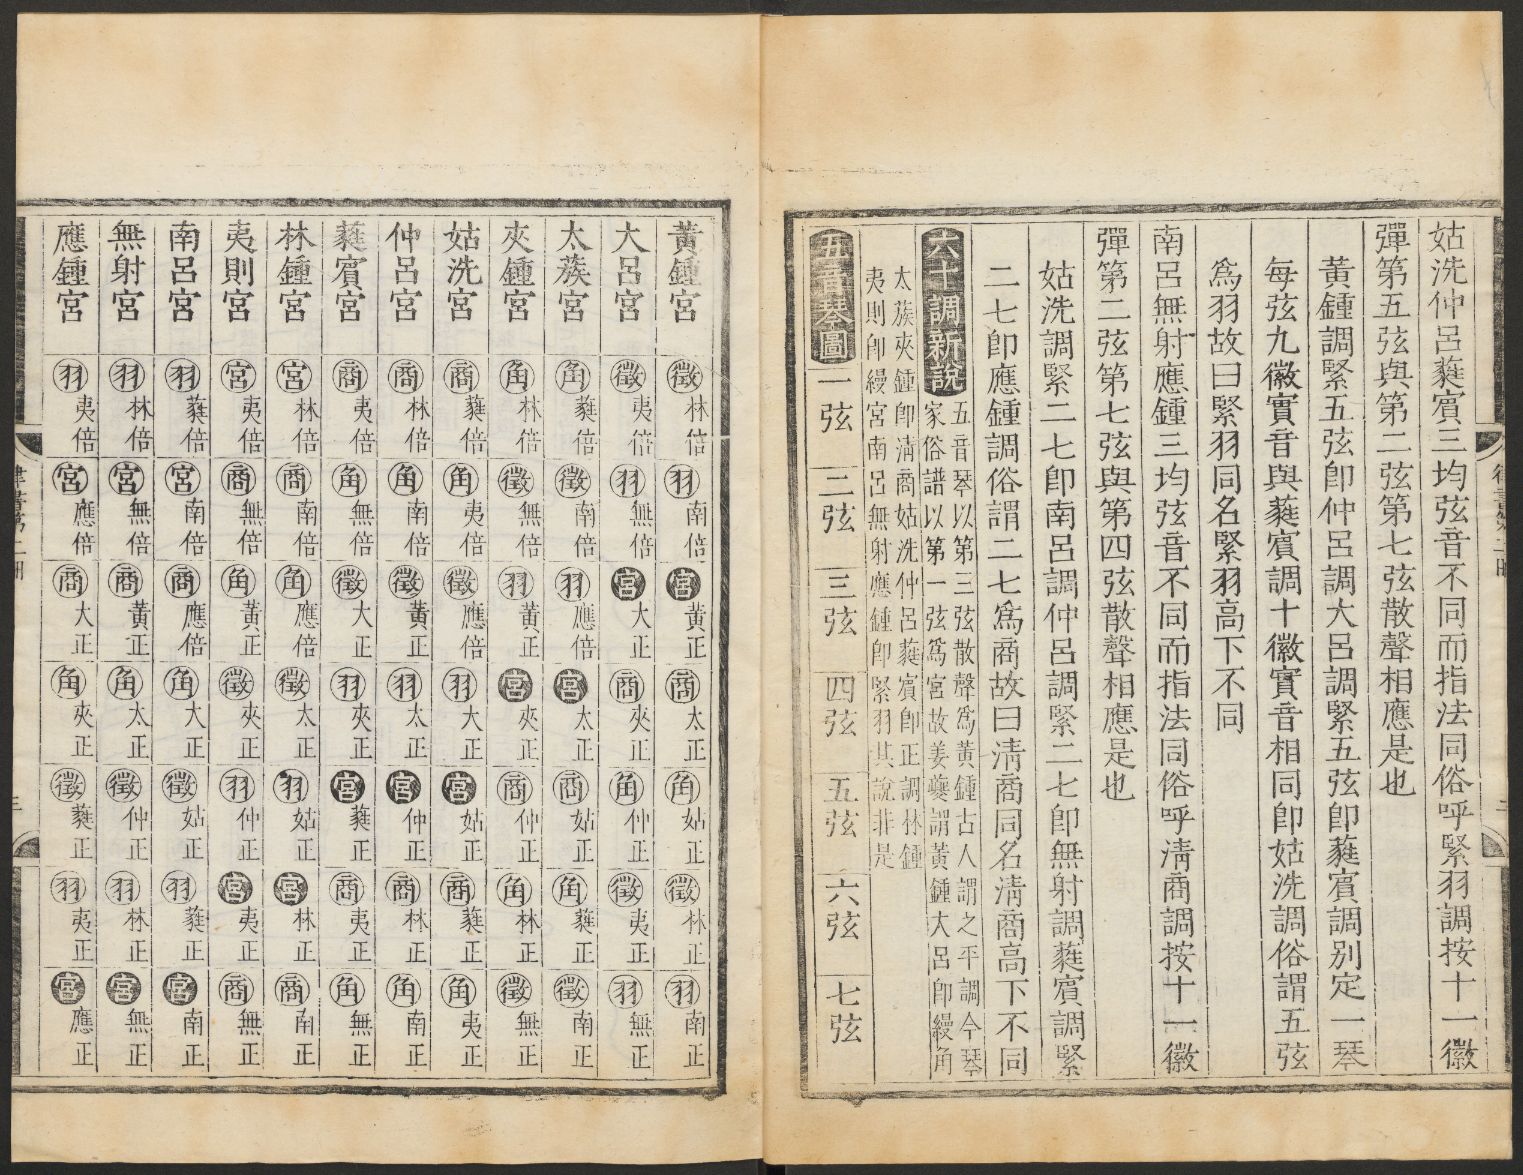 姑洗仲呂蕤賓三均弦音不同而指法同俗呼緊羽調按十一徽
彈第五弦與第二弦第七弦散聲相應是也
黃鍾調緊五弦卽仲呂調大呂調緊五弦卽蕤賓調別定一琴
每弦九徽實音與蕤賓調十徽實音相同卽姑洗調俗謂五弦
爲羽故曰緊羽同名緊羽高下不同
南呂無射應鍾三均弦音不同而指法同俗呼淸商調按十一徽
彈第二弦第七弦與第四弦散聲相應是也
姑洗調緊二七卽南呂調仲呂調緊二七卽無射調蕤賓調緊
二七卽應鍾調俗謂二七爲商故曰淸商同名淸商高下不同
六十調新說
五音琴以第三弦散聲爲黃鍾古人謂之平調今琴
家俗譜以第一弦爲宮故姜夔謂黃鍾大呂卽緩角
太蔟夾鍾卽淸商姑洗仲呂蕤賓卽正調林鍾
夷則卽緩宮南呂無射應鍾卽緊羽其說非是
五音琴圖 一弦 二弦 三弦 四弦 五弦 六弦 七弦
黃鍾宮 徵林倍 羽南倍 宮黃正 商太正 角姑正 徵林正 羽南正
大呂宮 徵夷倍 羽無倍 宮大正 商夾正 角仲正 徵夷正 羽無正
太蔟宮 角蕤倍 徵南倍 羽應倍 宮太正 商姑正 角蕤正 徵南正
夾鍾宮 角林倍 徵無倍 羽黃正 宮夾正 商仲正 角林正 徵無正
姑洗宮 商蕤倍 角夷倍 徵應倍 羽大正 宮姑正 商蕤正 角夷正
仲呂宮 商林倍 角南倍 徵黃正 羽太正 宮仲正 商林正 角南正
蕤賓宮 商夷倍 角無倍 徵大正 羽夾正 宮蕤正 商夷正 角無正
林鍾宮 宮林倍 商南倍 角應倍 徵太正 羽姑正 宮林正 商南正
夷則宮 宮夷倍 商無倍 角黃正 徵夾正 羽仲正 宮夷正 商無正
南呂宮 羽蕤倍 宮南倍 商應倍 角大正 徵姑正 羽蕤正 宮南正
無射宮 羽林倍 宮無倍 商黃正 角太正 徵仲正 羽林正 宮無正
應鍾宮 羽夷倍 宮應倍 商大正 角夾正 徵蕤正 羽夷正 宮應正